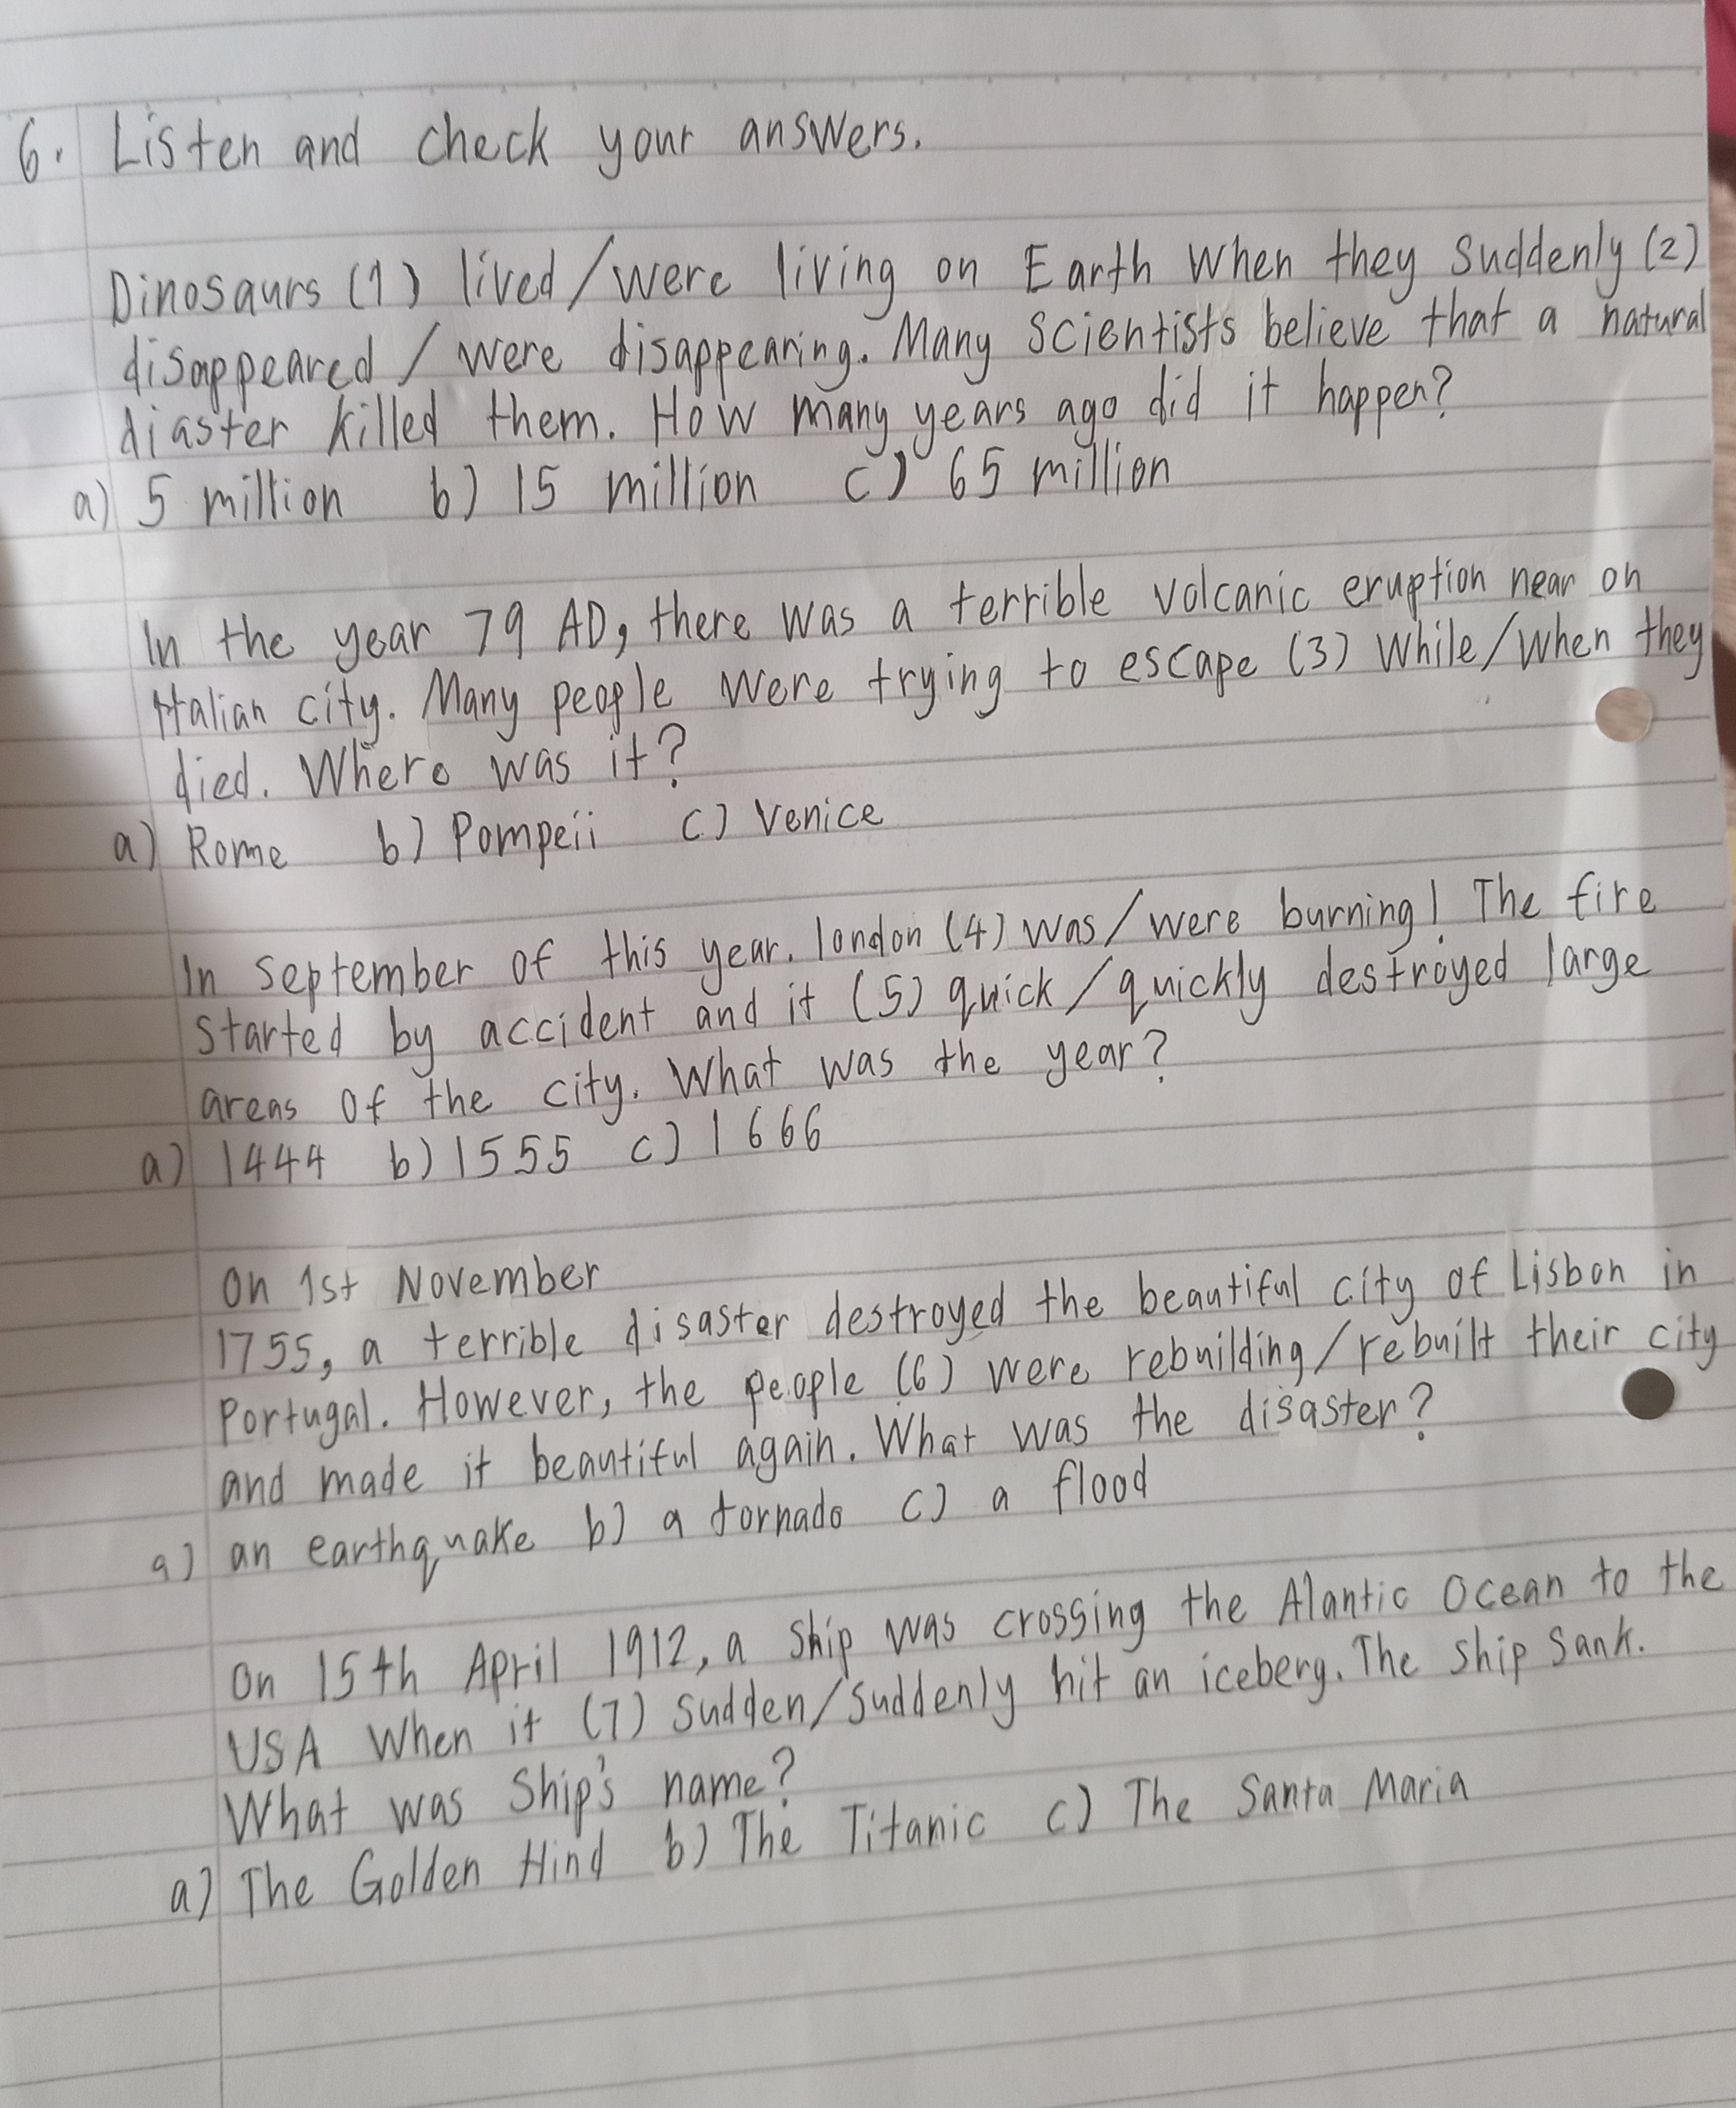 6. Listen and check your answers.
Dinosaurs (1) lived/were living on Earth when they suddenly (2)
disappeared / were disappearing. Many scientists believe that a natural
diaster killed them. How many years ago did it happen?
a) 5 million b) 15 million c) 65 million
In the year 79 AD, there was a terrible volcanic eruption near on
Italian city. Many people were trying to escape (3) while/when they
died. Where was it?
a) Rome b) Pompeii c) Venice
In september of this year. london (4) was/were burning! The fire
started by accident and it (5) quick/quickly destroyed large
areas of the city. What was the year?
a) 1444 b) 1555 c) 1666
On 1st November
1755, a terrible disaster destroyed the beautiful city of Lisbon in
Portugal. However, the people (6) were rebuilding/rebuilt their city
and made it beautiful again. What was the disaster?
a) an earthquake b) a tornado c) a flood
On 15th April 1912, a ship was crossing the Alantic Ocean to the
USA when it (7) sudden/suddenly hit an iceberg. The ship sank.
What was ship's name?
a) The Golden Hind b) The Titanic c) The Santa Maria